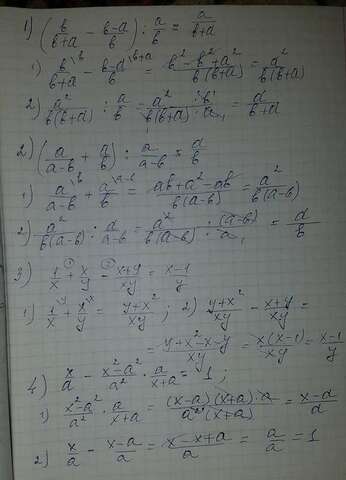 1) (b/(b+a) - (b-a)/b) : a/b = a/(b+a)
1) b/(b+a) - (b-a)/b = (b²-b²+a²)/(b(b+a)) = a²/(b(b+a))
2) a²/(b(b+a)) : a/b = a²/(b(b+a)) · b/a = a/(b+a)
2) (a/(a-b) + a/b) : a/(a-b) = a/b
1) a/(a-b) + a/b = (ab+a²-ab)/(b(a-b)) = a²/(b(a-b))
2) a²/(b(a-b)) : a/(a-b) = a²/(b(a-b)) · (a-b)/a = a/b
3) 1/x + x/y - (x+y)/xy = (x-1)/y
1) 1/x + x/y = (y+x²)/xy ; 2) (y+x²)/xy - (x+y)/xy =
= (y+x²-x-y)/xy = x(x-1)/xy = (x-1)/y
4) x/a - (x²-a²)/a² · a/(x+a) = 1 ;
1) (x²-a²)/a² · a/(x+a) = (x-a)(x+a)·a/(a²(x+a)) = (x-a)/a
2) x/a - (x-a)/a = (x-x+a)/a = a/a = 1